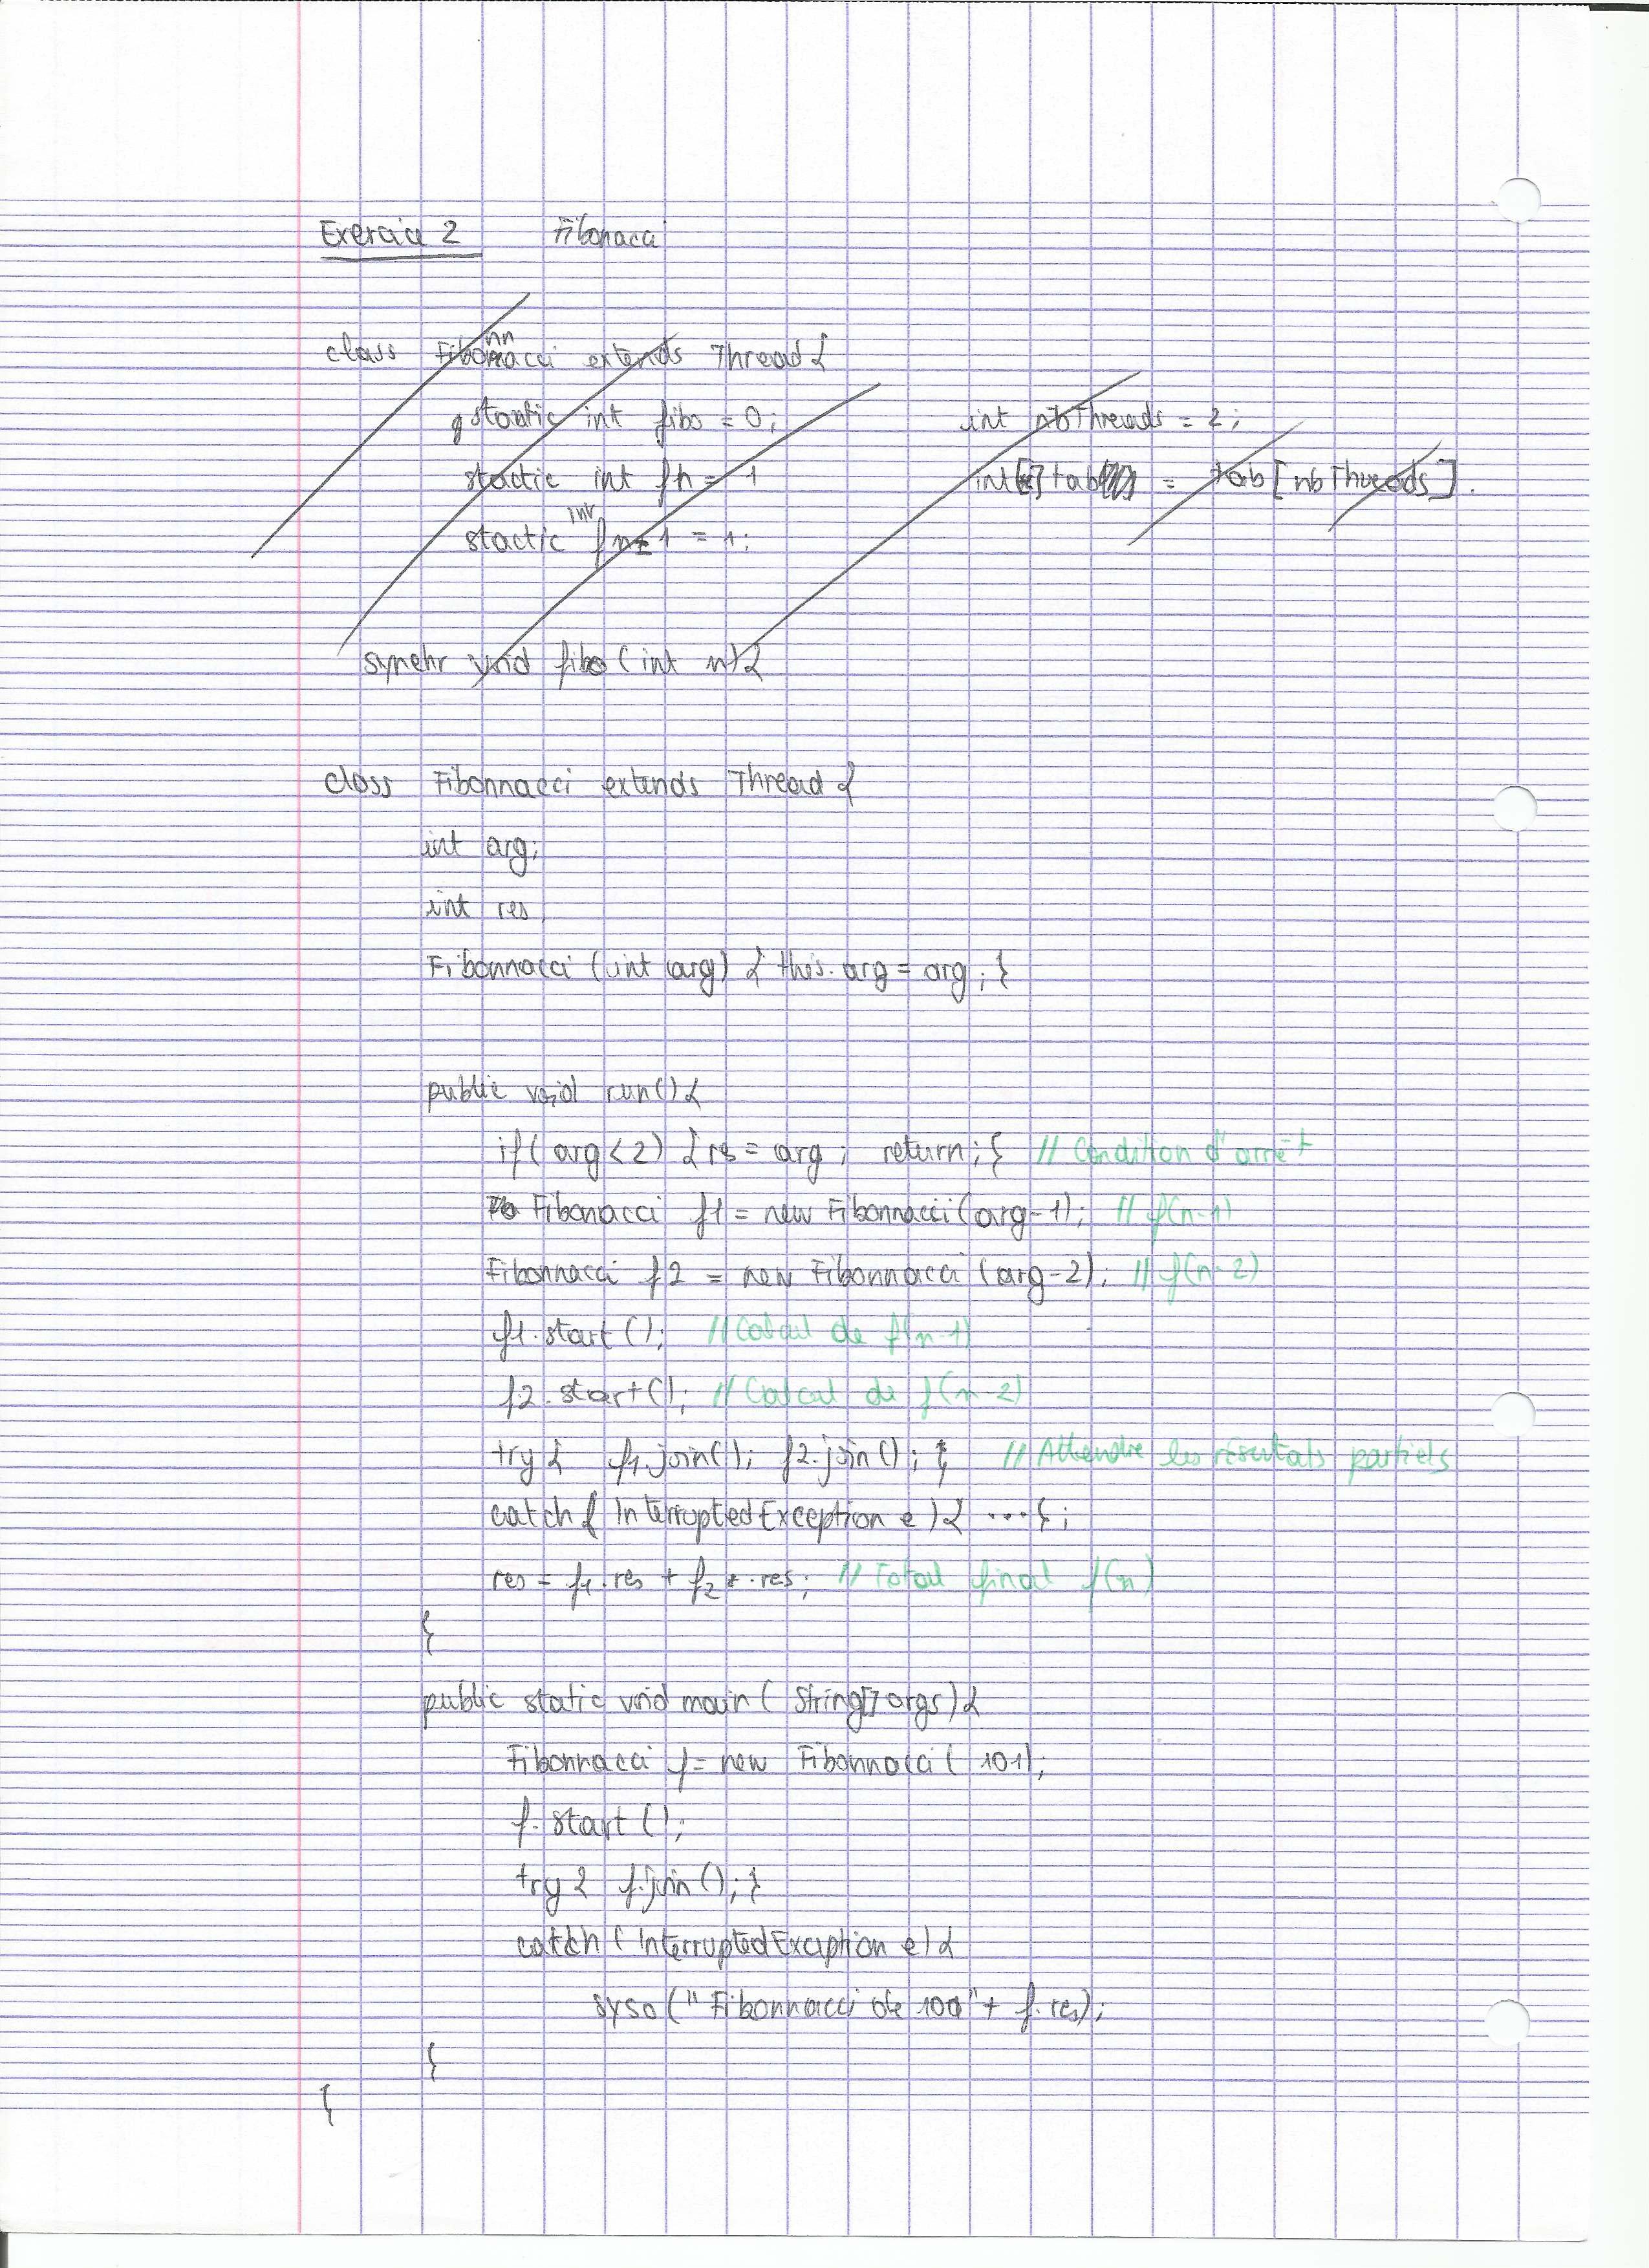 Exercice 2 Fibonacci
class Fibonnacci extends Thread {
static int fibo = 0; int nbThreads = 2;
stactic int fn = 1 int[] tab = tab[nbThreads].
stactic int fn-1 = 1;
synchr void fibo(int n){
class Fibonnacci extends Thread {
int arg;
int res,
Fibonnacci (int arg) { this.arg = arg; }
public void run() {
if( arg < 2) { res = arg; return; } // Condition d'arrêt
Fibonacci f1 = new Fibonnacci(arg-1); // f(n-1)
Fibonnacci f2 = new Fibonnacci (arg-2); // f(n-2)
f1.start(); // Calcul de f(n-1)
f2.start(); // Calcul de f(n-2)
try { f1.join(); f2.join(); } // Attendre les résultats partiels
catch( InterruptedException e) { ...};
res = f1.res + f2.res; // Total final f(n)
}
public static void main( String[] args) {
Fibonnacci f = new Fibonnacci( 101);
f.start();
try { f.join(); }
catch ( InterruptedException e) {
syso ("Fibonnacci de 100" + f.res);
}
}